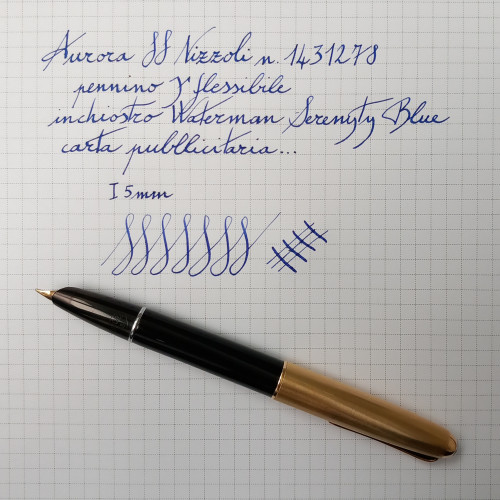 Aurora 88 Nizzoli n. 1431278
pennino γ flessibile
inchiostro Waterman Serenyty Blue
carta pubblicitaria...
I 5mm